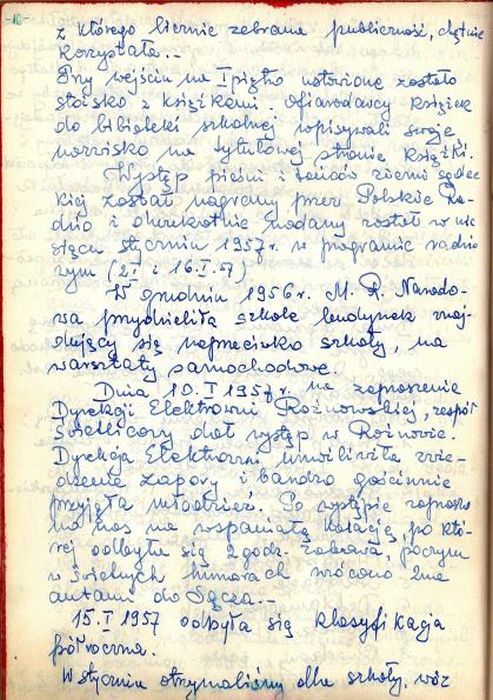 -10-
z którego licznie zebrana publiczność, chętnie
korzystała.-
Przy wejściu na I piętro ustawione zostało
stoisko z książkami. Ofiarodawcy książek
do biblioteki szkolnej wpisywali swoje
nazwisko na tytułowej stronie książki.
Występ pieśni i tańców ziemi sądec
kiej został nagrany przez Polskie Ra-
dio i dwukrotnie nadany został w mie
siącu styczniu 1957r. w programie radio
wym (2.I i 16.I.57)
W grudniu 1956r. M. R. Narodo-
wa przydzieliła szkole budynek znaj-
dujący się naprzeciwko szkoły, na
warsztaty samochodowe.
Dnia 10.I 1957r. na zaproszenie
Dyrekcji Elektrowni Rożnowskiej, zespół
świetlicowy dał występ w Rożnowie.
Dyrekcja Elektrowni umożliwiła zwie-
dzenie zapory i bardzo gościnnie
przyjęła młodzież. Po występie zaproszo
no nas na wspaniałą kolację, po któ-
rej odbyła się 2 godz. zabawa, poczym
w świetnych humorach wrócono 2ma
autami do Sącza.-
15.I 1957 odbyła się klasyfikacja
półroczna.
W styczniu otrzymaliśmy dla szkoły, wóz